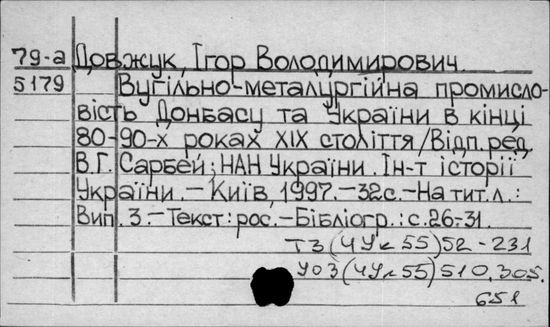 79-а Довжук, Ігор Володимирович.
5179 Вугільно-металургійна промисло-
вість Донбасу та України в кінці
80-90-х роках XIX століття/Відп.ред.
В.Г. Сарбей; НАН України. Ін-т історії
України.-Київ, 1997.-32с.-На тит.л.:
Вип. 3.-Текст: рос.-Бібліогр.: с.26-31.
Т3(4Ук55)52-231
У03(4Ук55)510,305.